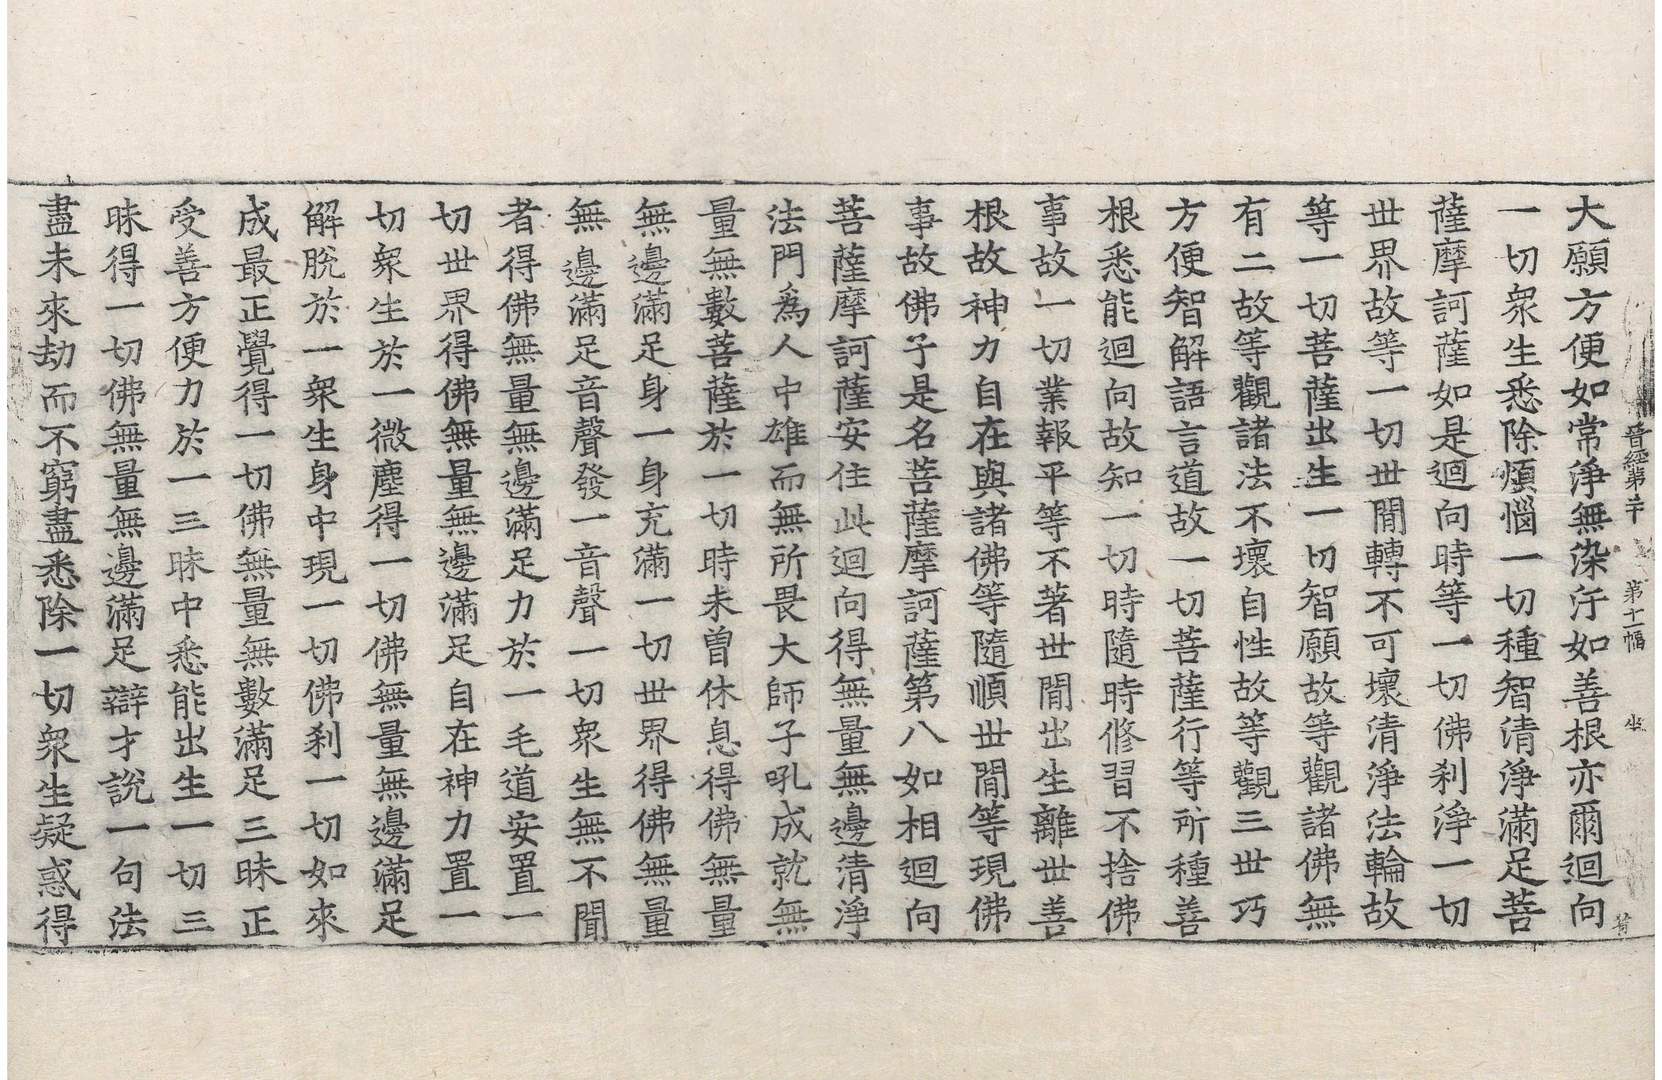 晉經第二十　第十一幅　坐
大願方便如常淨無染汙如善根亦爾迴向
一切衆生悉除煩惱一切種智清淨滿足菩
薩摩訶薩如是迴向時等一切佛刹淨一切
世界故等一切世間轉不可壞清淨法輪故
等一切菩薩出生一切智願故等觀諸佛無
有二故等觀諸法不壞自性故等觀三世巧
方便智解語言道故一切菩薩行等所種善
根悉能迴向故知一切時隨時修習不捨佛
事故一切業報平等不著世間出生離世善
根故神力自在與諸佛等隨順世間等現佛
事故佛子是名菩薩摩訶薩第八如相迴向
菩薩摩訶薩安住此迴向得無量無邊清淨
法門爲人中雄而無所畏大師子吼成就無
量無數菩薩於一切時未曽休息得佛無量
無邊滿足身一身充滿一切世界得佛無量
無邊滿足音聲發一音聲一切衆生無不聞
者得佛無量無邊滿足力於一毛道安置一
切世界得佛無量無邊滿足自在神力置一
切衆生於一微塵得一切佛無量無邊滿足
解脫於一衆生身中現一切佛刹一切如來
成最正覺得一切佛無量無數滿足三昧正
受善方便力於一三昧中悉能出生一切三
昧得一切佛無量無邊滿足辯才說一句法
盡未來劫而不窮盡悉除一切衆生疑惑得